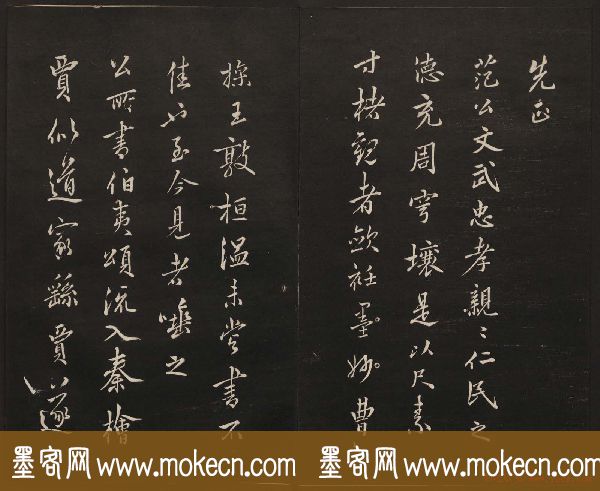 先正
范公文武忠孝親〻仁民之
德充周穹壤是以尺素
寸楮觀者歛衽墨妙曹
操王敦桓温未嘗書不
佳而至今見者唾之
公所書伯夷頌流入秦檜
賈似道家繇賈遂
墨客网 www.mokecn.com 墨客网 www.mokecn.com